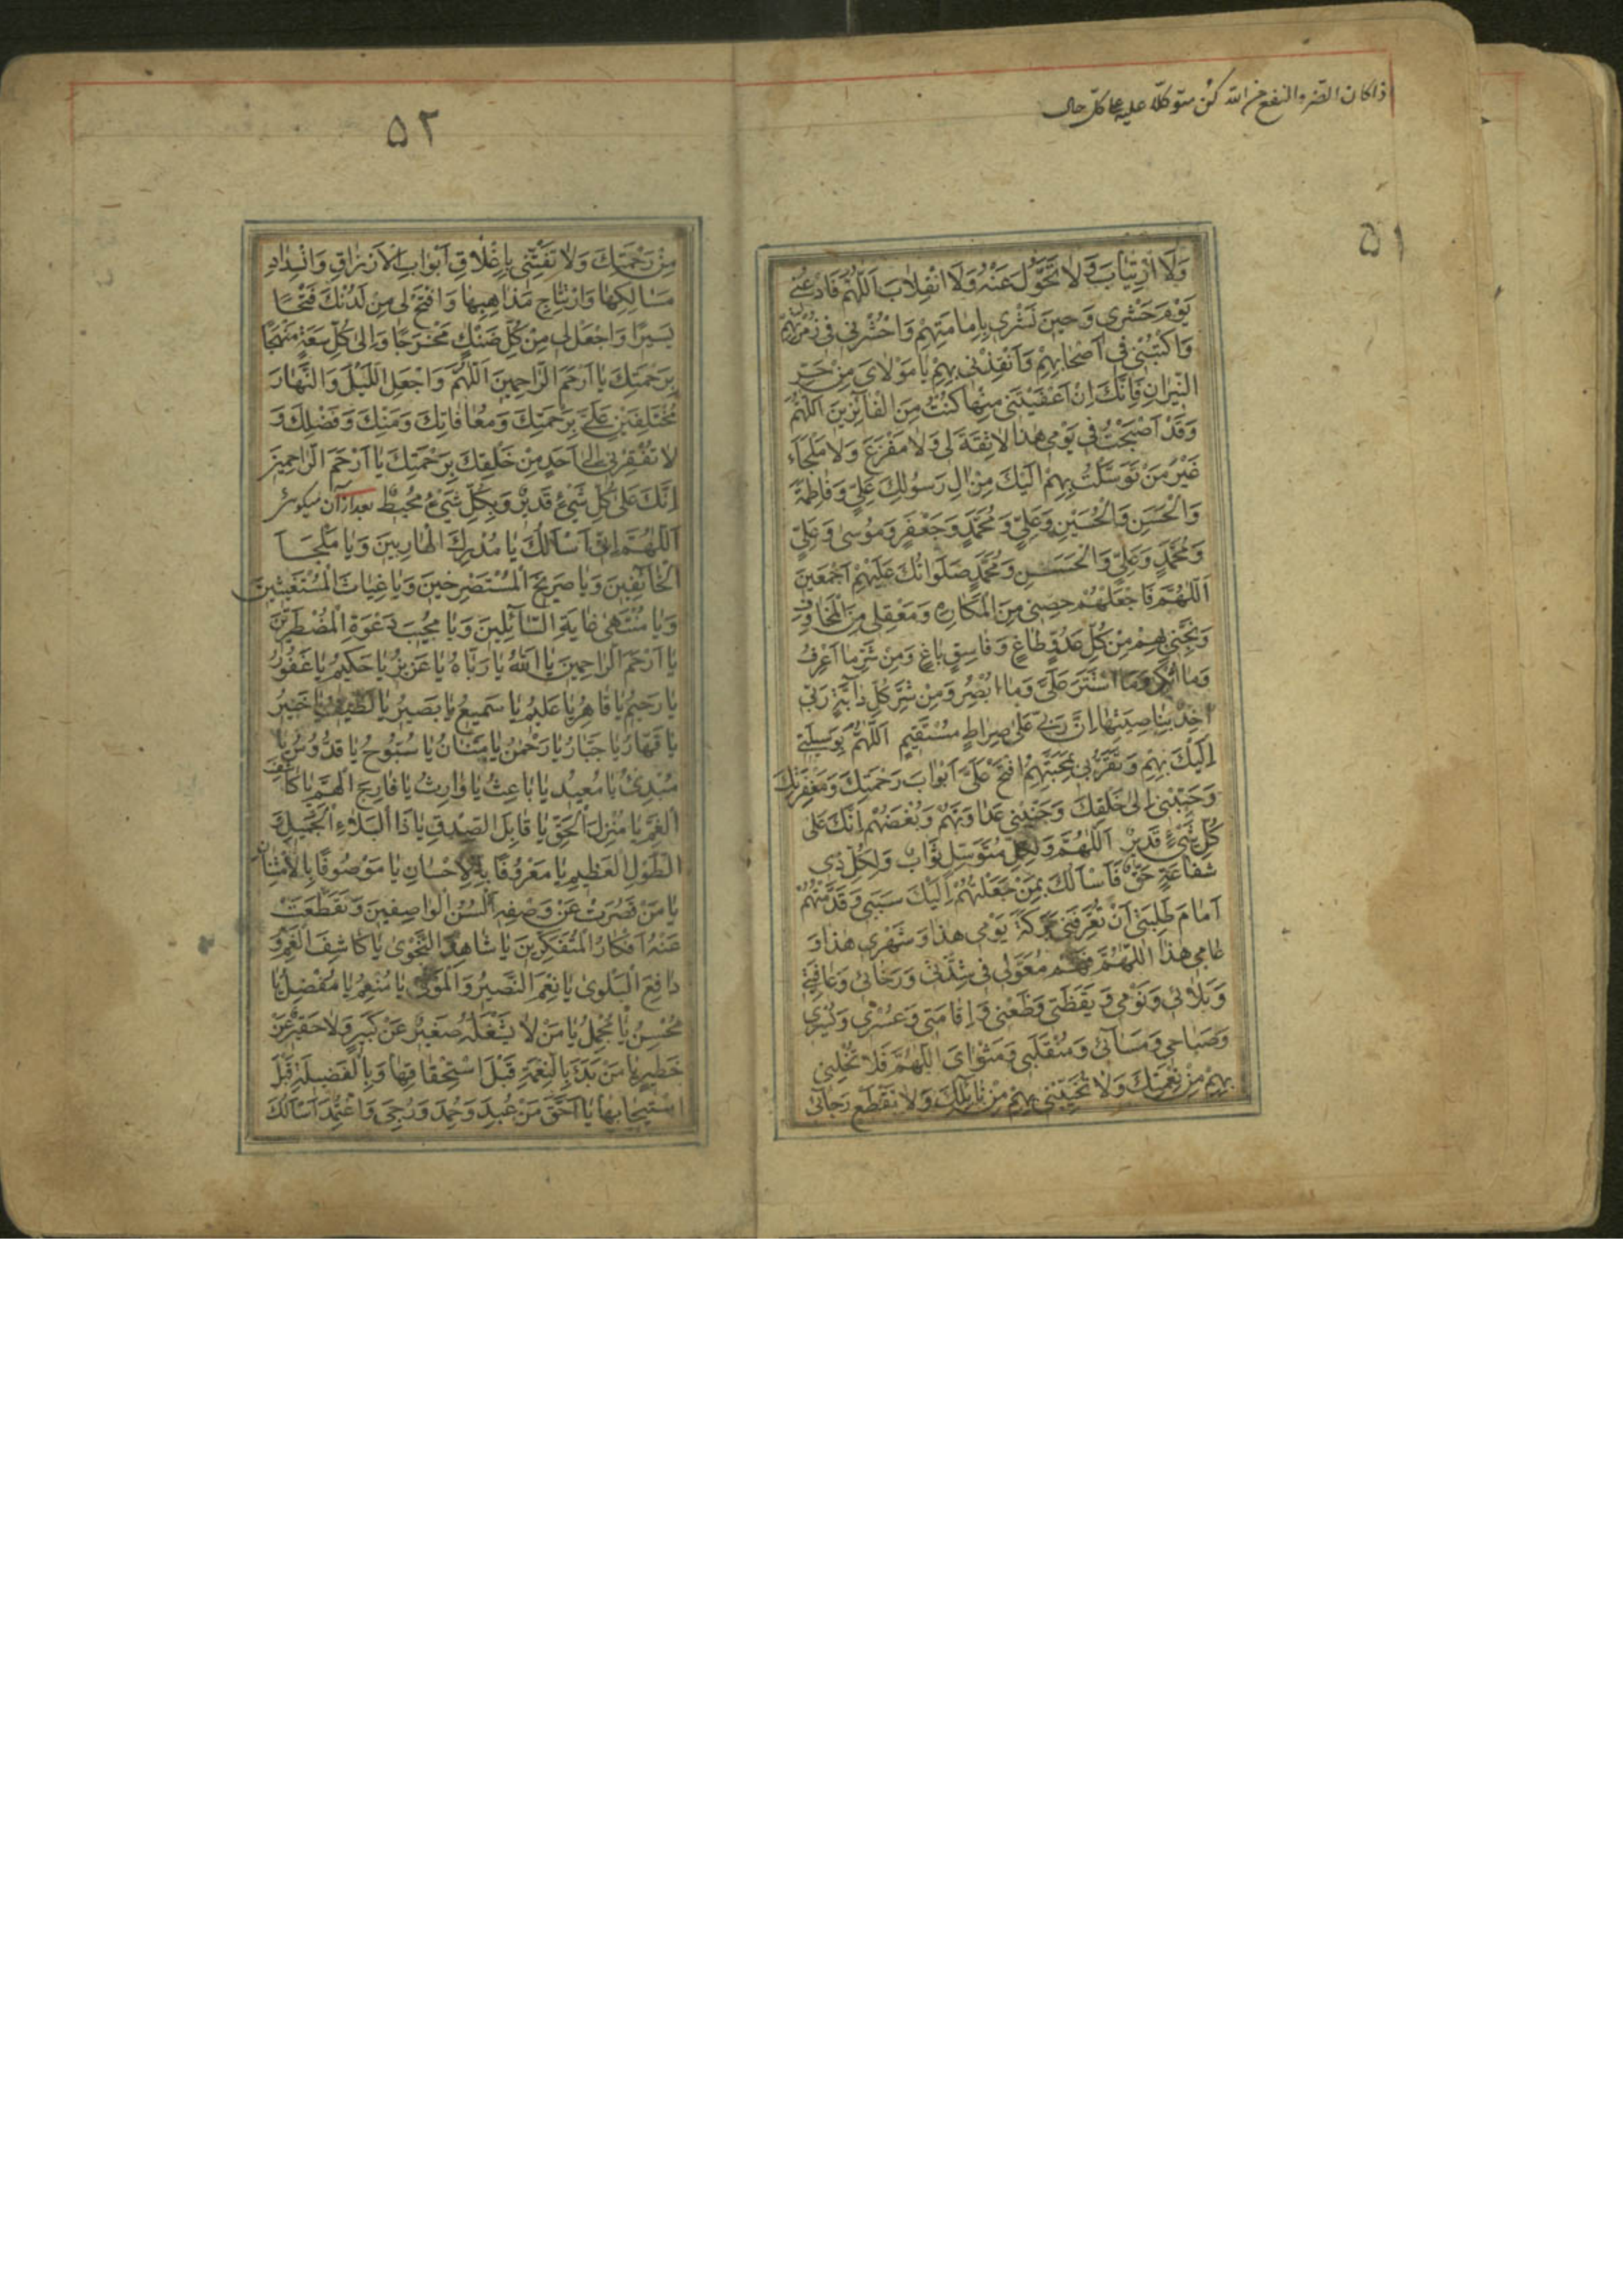 ذا كان الضر والنفع من الله كن متوكلا عليه على كل حال
٥١
وَلَا ارْتِيَابَ وَلَا تَحَوُّلَ عَنْهُ وَلَا انْقِلَابَ اَللّٰهُمَّ فَادْعُنِي
يَوْمَ حَشْرِي وَحِينَ نَشْرِي بِإِمَامَتِهِمْ وَاحْشُرْنِي فِي زُمْرَتِهِمْ
وَاكْتُبْنِي فِي أَصْحَابِهِمْ وَأَنْقِذْنِي بِهِمْ يَا مَوْلَايَ مِنْ حَرِّ
النِّيرَانِ فَإِنَّكَ إِنْ أَعْفَيْتَنِي مِنْهَا كُنْتُ مِنَ الْفَائِزِينَ اَللّٰهُمَّ
وَقَدْ أَصْبَحْتُ فِي يَوْمِي هٰذَا لَا ثِقَةَ لِي وَلَا مَفْزَعَ وَلَا مَلْجَاءَ
غَيْرُ مَنْ تَوَسَّلْتُ بِهِمْ اِلَيْكَ مِنْ اٰلِ رَسُولِكَ عَلِيٍّ وَفَاطِمَةَ
وَالْحَسَنِ وَالْحُسَيْنِ وَعَلِيٍّ وَمُحَمَّدٍ وَجَعْفَرٍ وَمُوسٰى وَعَلِيٍّ
وَمُحَمَّدٍ وَعَلِيٍّ وَالْحَسَنِ وَمُحَمَّدٍ صَلَوَاتُكَ عَلَيْهِمْ اَجْمَعِينَ
اَللّٰهُمَّ فَاجْعَلْهُمْ حِصْنِي مِنَ الْمَكَارِهِ وَمَعْقِلِي مِنَ الْمَخَاوِفِ
وَنَجِّنِي بِهِمْ مِنْ كُلِّ عَدُوٍّ طَاغٍ وَفَاسِقٍ بَاغٍ وَمِنْ شَرِّ مَا اَعْرِفُ
وَمَا اُنْكِرُ وَمَا اسْتَتَرَ عَلَيَّ وَمَا اُبْصِرُ وَمِنْ شَرِّ كُلِّ دَابَّةٍ رَبِّي
اٰخِذٌ بِنَاصِيَتِهَا اِنَّ رَبِّي عَلٰى صِرَاطٍ مُسْتَقِيمٍ اَللّٰهُمَّ بِوَسِيلَتِي
اِلَيْكَ بِهِمْ وَتَقَرُّبِي بِمَحَبَّتِهِمُ افْتَحْ عَلَيَّ اَبْوَابَ رَحْمَتِكَ وَمَغْفِرَتِكَ
وَحَبِّبْنِي اِلٰى خَلْقِكَ وَجَنِّبْنِي عَدَاوَتَهُمْ وَبُغْضَهُمْ اِنَّكَ عَلٰى
كُلِّ شَيْءٍ قَدِيرٌ اَللّٰهُمَّ وَلِكُلِّ مُتَوَسِّلٍ ثَوَابٌ وَلِكُلِّ ذِي
شَفَاعَةٍ حَقٌّ فَاَسْاَلُكَ بِمَنْ جَعَلْتُهُمْ اِلَيْكَ سَبَبِي وَقَدَّمْتُهُمْ
اَمَامَ طَلِبَتِي اَنْ تُعَرِّفَنِي بَرَكَةَ يَوْمِي هٰذَا وَشَهْرِي هٰذَا وَ
عَامِي هٰذَا اَللّٰهُمَّ فَهُمْ مُعَوَّلِي فِي شِدَّتِي وَرَخَائِي وَعَافِيَتِي
وَبَلَائِي وَنَوْمِي وَيَقَظَتِي وَظَعْنِي وَاِقَامَتِي وَعُسْرِي وَيُسْرِي
وَصَبَاحِي وَمَسَائِي وَمُنْقَلَبِي وَمَثْوَايَ اَللّٰهُمَّ فَلَا تُخْلِنِي
بِهِمْ مِنْ نِعْمَتِكَ وَلَا تُخَيِّبْنِي بِهِمْ مِنْ نَائِلِكَ وَلَا تَقْطَعْ رَجَائِي
٥٢
مِنْ رَحْمَتِكَ وَلَا تَفْتِنِّي بِإِغْلَاقِ اَبْوَابِ الْاَرْزَاقِ وَانْسِدَادِ
مَسَالِكِهَا وَارْتِتَاجِ مَذَاهِبِهَا وَافْتَحْ لِي مِنْ لَدُنْكَ فَتْحًا
يَسِيرًا وَاجْعَلْ لِي مِنْ كُلِّ ضَنْكٍ مَخْرَجًا وَاِلٰى كُلِّ سَعَةٍ مَنْهَجًا
بِرَحْمَتِكَ يَا اَرْحَمَ الرَّاحِمِينَ اَللّٰهُمَّ وَاجْعَلِ اللَّيْلَ وَالنَّهَارَ
مُخْتَلِفَيْنِ عَلَيَّ بِرَحْمَتِكَ وَمُعَافَاتِكَ وَمَنِّكَ وَفَضْلِكَ وَ
لَا تُفْقِرْنِي اِلٰى اَحَدٍ مِنْ خَلْقِكَ بِرَحْمَتِكَ يَا اَرْحَمَ الرَّاحِمِينَ
اِنَّكَ عَلٰى كُلِّ شَيْءٍ قَدِيرٌ وَبِكُلِّ شَيْءٍ مُحِيطٌ بعد از آن میگوئی
اَللّٰهُمَّ اِنِّي اَسْاَلُكَ يَا مُدْرِكَ الْهَارِبِينَ وَيَا مَلْجَاَ
الْخَائِفِينَ وَيَا صَرِيخَ الْمُسْتَصْرِخِينَ وَيَا غِيَاثَ الْمُسْتَغِيثِينَ
وَيَا مُنْتَهٰى غَايَةِ السَّائِلِينَ وَيَا مُجِيبَ دَعْوَةِ الْمُضْطَرِّينَ
يَا اَرْحَمَ الرَّاحِمِينَ يَا اَللّٰهُ يَا رَبَّاهُ يَا عَزِيزُ يَا حَكِيمُ يَا غَفُورُ
يَا رَحِيمُ يَا قَاهِرُ يَا عَلِيمُ يَا سَمِيعُ يَا بَصِيرُ يَا لَطِيفُ يَا خَبِيرُ
يَا قَهَّارُ يَا جَبَّارُ يَا رَحْمٰنُ يَا مَنَّانُ يَا سُبُّوحُ يَا قُدُّوسُ يَا
مُبْدِئُ يَا مُعِيدُ يَا بَاعِثُ يَا وَارِثُ يَا فَارِجَ الْهَمِّ يَا كَاشِفَ
الْغَمِّ يَا مُنْزِلَ الْحَقِّ يَا قَابِلَ الصِّدْقِ يَا ذَا الْبَلَاءِ الْجَمِيلِ وَ
الطَّوْلِ الْعَظِيمِ يَا مَعْرُوفًا بِالْاِحْسَانِ يَا مَوْصُوفًا بِالْاِمْتِنَانِ
يَا مَنْ قَصُرَتْ عَنْ وَصْفِهِ اَلْسُنُ الْوَاصِفِينَ وَتَقَطَّعَتْ
عَنْهُ اَفْكَارُ الْمُتَفَكِّرِينَ يَا شَاهِدَ النَّجْوٰى يَا كَاشِفَ الْغَمِّ وَ
دَافِعَ الْبَلْوٰى يَا نِعْمَ النَّصِيرُ وَالْمَوْلٰى يَا مُنْعِمُ يَا مُفْضِلُ يَا
مُحْسِنُ يَا مُجْمِلُ يَا مَنْ لَا يَشْغَلُهُ صَغِيرٌ عَنْ كَبِيرٍ وَلَا حَقِيرٌ عَنْ
خَطِيرٍ يَا مَنْ بَدَءَ بِالنِّعْمَةِ قَبْلَ اسْتِحْقَاقِهَا وَبِالْفَضِيلَةِ قَبْلَ
اسْتِيجَابِهَا يَا اَحَقَّ مَنْ عُبِدَ وَحُمِدَ وَرُجِيَ وَاعْتُمِدَ اَسْاَلُكَ